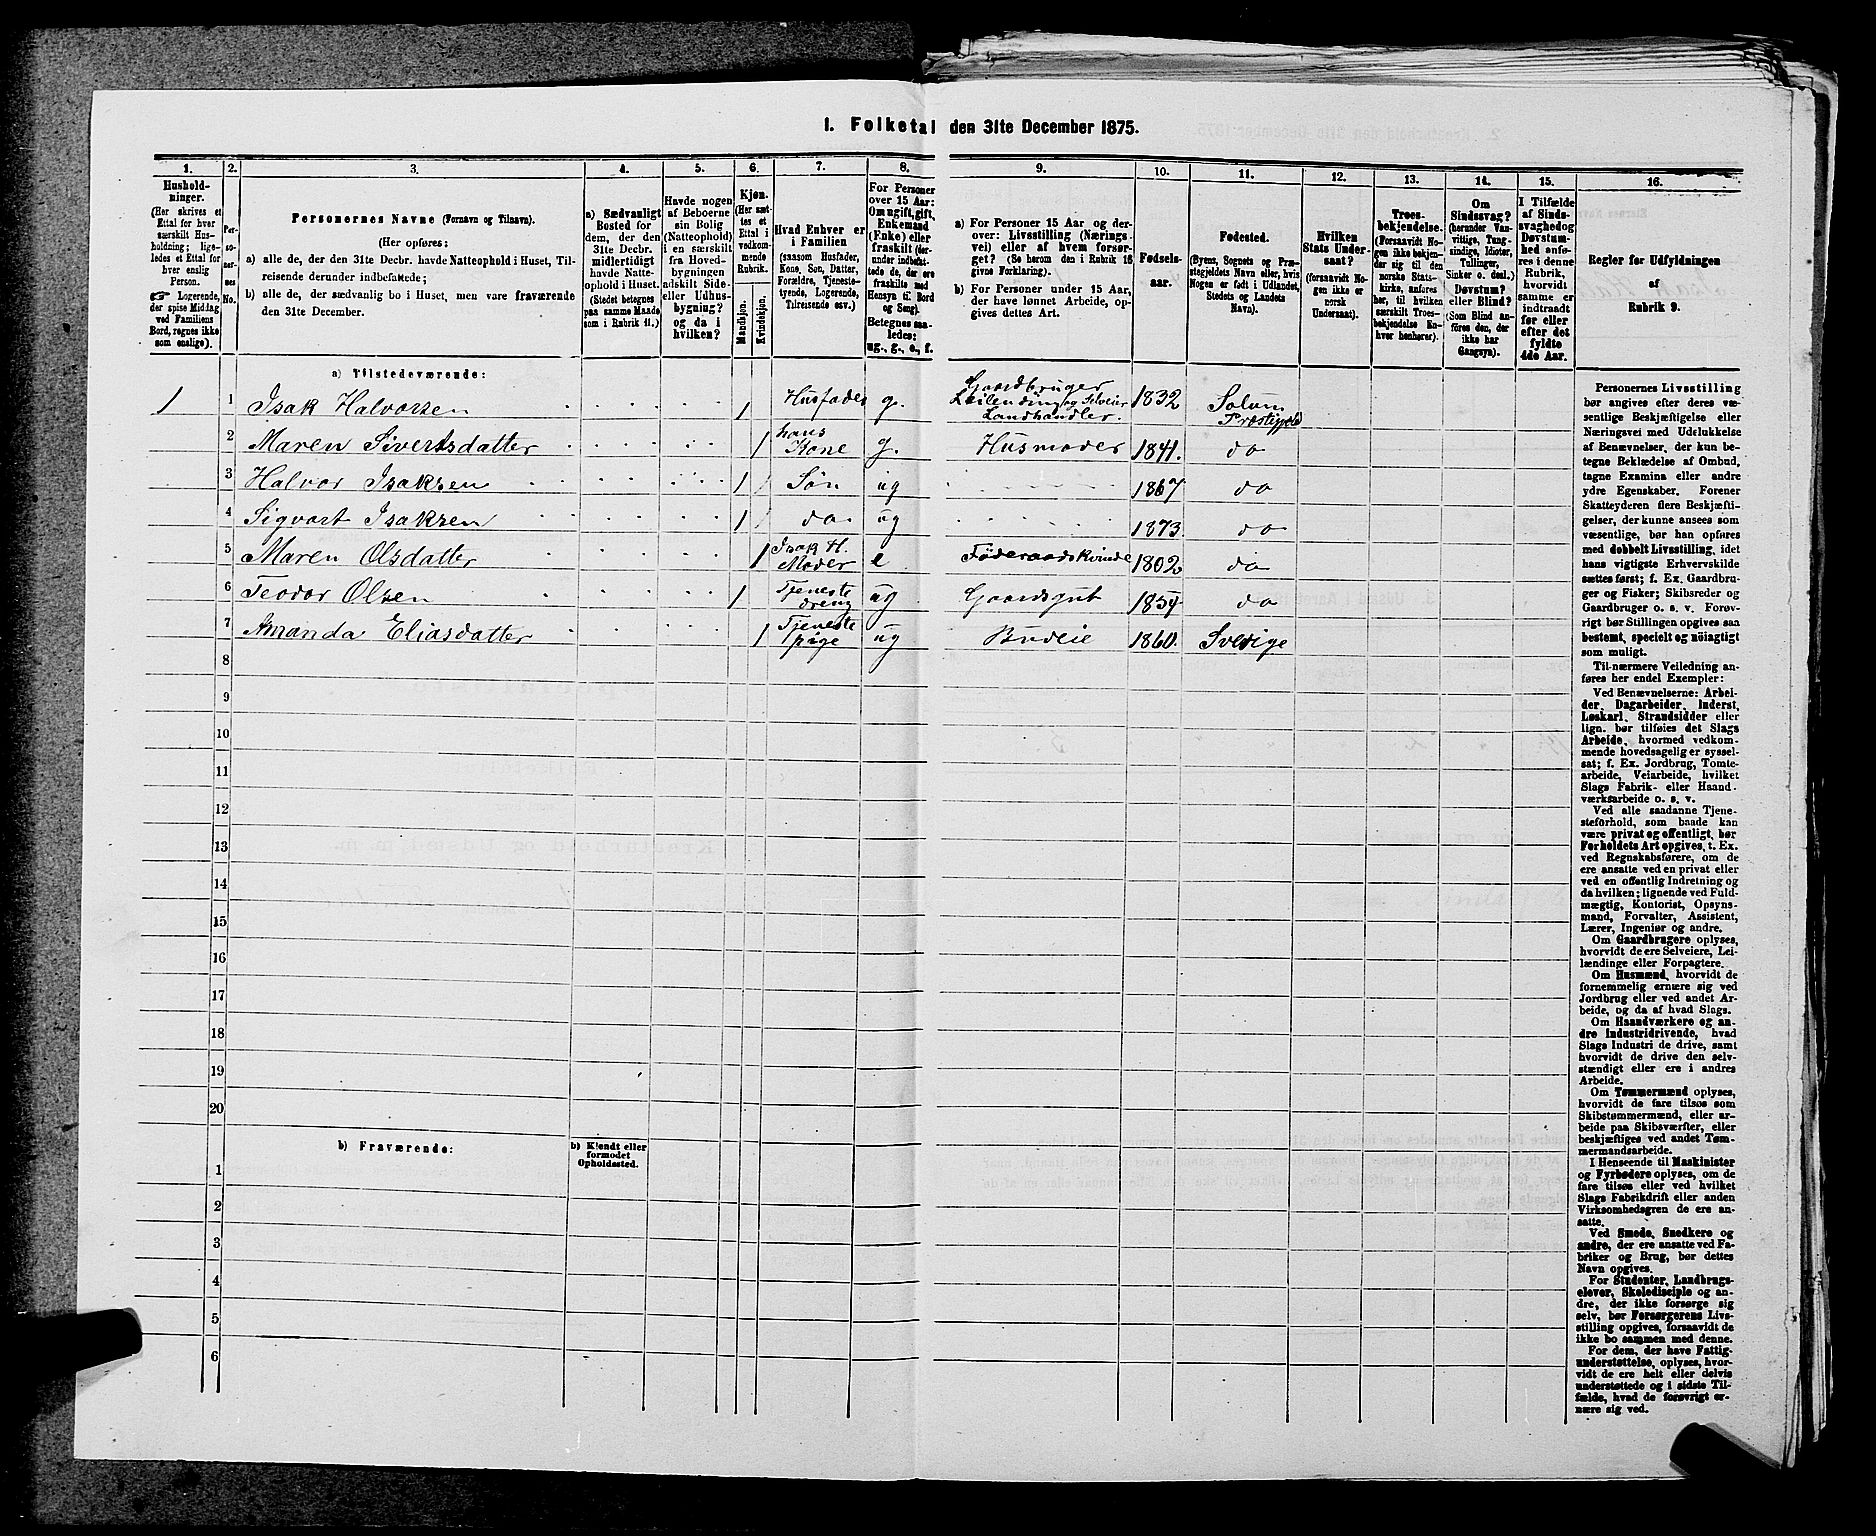 1. Folketal den 31te December 1875.
1. 2. 3. 4. 5. 6. 7. 8. 9. 10. 11. 12. 13. 14. 15. 16.
Hushold-
ninger.
(Her skrives et
Ettal for hver
særskilt Hus-
holdning; lige-
ledes et Ettal for
hver enslig
Person.
☞ Logerende,
der spise Middag
ved Familiens
Bord, regnes ikke
som enslige).
Per-
so-
ner-
nes
No.
Personernes Navne (Fornavn og Tilnavn).
(Her opføres:
a) alle de, der den 31te Decbr. havde Natteophold i Huset, Til-
reisende derunder indbefattede;
b) alle de, der sædvanlig bo i Huset, men vare fraværende
den 31te December.
a) Sædvanligt
Bosted for
dem, der den
31te Decbr.
midlertidigt
havde Natte-
ophold i Huset.
(Stedet betegnes
paa samme Maade
som i Rubrik 11.)
Havde nogen
af Beboerne
sin Bolig
(Natteophold)
i en særskilt
fra Hoved-
bygningen
adskilt Side-
eller Udhus-
bygning?
og da i
hvilken?
Kjøn.
(Her sæt-
tes et
Ettal i
vedkom-
mende
Rubrik.
Mandkjøn.
Kvindekjøn.
Hvad Enhver er
i Familien
(saasom Husfader,
Kone, Søn, Datter,
Forældre, Tjeneste-
tyende, Logerende,
Tilreisende osv.).
For Personer
over 15 Aar:
Om ugift, gift,
Enkemand
(Enke) eller
fraskilt (der-
under indbefat-
tede de, der ere
fraskilte med
Hensyn til Bord
og Seng).
Betegnes saa-
ledes:
ug., g., e., f.
a) For Personer 15 Aar og der-
over: Livsstilling (Nærings-
vei) eller af hvem forsør-
get? (Se herom den i Rubrik 16
givne Forklaring).
b) For Personer under 15 Aar,
der have lønnet Arbeide, op-
gives dettes Art.
Fødsels-
aar.
Fødested.
(Byens, Sognets og Præ-
stegjeldets Navn eller, hvis
Nogen er født i Udlandet,
Stedets og Landets
Navn).
Hvilken
Stats Under-
saat?
(forsaavidt No-
gen ikke er
norsk
Undersaat).
Troes-
bekjendelse.
(Forsaavidt No-
gen ikke bekjen-
der sig til den
norske Stats-
kirke, anføres
her, til hvilken
særskilt Troes-
bekjendelse En-
hver henhører).
Om
Sindssvag?
(herunder Van-
vittige, Tung-
sindige, Idioter,
Tullinger,
Sinker o. desl.)
Døvstum?
eller Blind?
(Som Blind an-
føres den, der
ikke har
Gangsyn).
I Tilfælde
af Sinds-
svaghed og
Døvstum-
hed anfø-
res i denne
Rubrik,
hvorvidt
samme er
indtraadt
før eller
efter det
fyldte
4de Aar.
Regler for Udfyldningen
af
Rubrik 9.
a) Tilstedeværende:
1 1 Isak Halvorsen 1 Husfader g. Gaardbruger Leilending og Selveier Landhandler. 1832 Solum Præstigjeld
2 Maren Sivertsdatter 1 hans Kone g. Husmoder 1841. do
3 Halvor Isaksen 1 Søn ug 1867 do
4 Sigvart Isaksen 1 do ug 1873. do
5 Maren Olsdatter 1 Isak H. Moder e Føderaadskvinde 1802 do
6 Teodor Olsen 1 Tjeneste dreng ug Gaardsgut 1854 do
7 Amanda Eliasdatter 1 Tjeneste pige ug Budeie 1860. Sverige
8
9
10
11
12
13
14
15
16
17
18
19
20
b) Fraværende:
b) Kjendt eller
formodet
Opholdssted.
1
2
3
4
5
6
Personernes Livsstilling
bør angives efter deres væ-
sentlige Beskjæftigelse eller
Næringsvei med Udelukkelse
af Benævnelser, der kun be-
tegne Beklædelse af Ombud,
tagne Examina eller andre
ydre Egenskaber. Forener
Skatteyderen flere Beskjæfti-
gelser, der kunne ansees som
væsentlige, bør han opføres
med dobbelt Livsstilling, idet
hans vigtigste Erhvervskilde
sættes først; f. Ex. Gaardbru-
ger og Fisker; Skibsreder og
Gaardbruger o. s. v. Forøv-
rigt bør Stillingen opgives saa
bestemt, specielt og nøiagtigt
som muligt.
Til nærmere Veiledning an-
føres her endel Exempler:
Ved Benævnelserne: Arbei-
der, Dagarbeider, Inderst,
Løskarl, Strandsidder eller
lign. bør tilføies det Slags
Arbeide, hvormed vedkom-
mende hovedsagelig er syssel-
sat; f. Ex. Jordbrug, Tomte-
arbeide, Veiarbeide, hvilket
Slags Fabrik- eller Haand-
værksarbeide o. s. v.
Ved alle saadanne Tjene-
steforhold, som baade kan
være privat og offentligt, bør
Forholdets Art opgives, t. Ex.
ved Regnskabsførere, om de
ere ansatte ved en privat eller
ved en offentlig Indretning og
da hvilken; lignende ved Fuld-
mægtig, Kontorist, Opsyns-
mand, Forvalter, Assistent,
Lærer, Ingeniør og andre.
Om Gaardbrugere oplyses,
hvorvidt de ere Selveiere, Lei-
lændinge eller Forpagtere.
Om Husmænd, hvorvidt de
fornemmelig ernære sig ved
Jordbrug eller ved andet Ar-
beide, og da af hvad Slags.
Om Haandværkere og an-
dre Industridrivende, hvad
Slags Industri de drive, samt
hvorvidt de drive den selv-
stændigt eller ere i andres
Arbeide.
Om Tømmermænd oplyses,
hvorvidt de fare tilsøs som
Skibstømmermænd, eller ar-
beide paa Skibsværfter, eller
beskjæftiges ved andet Tøm-
mermandsarbeide.
I Henseende til Maskinister
og Fyrbødere oplyses, om de
fare tilsøs eller ved hvilket
Slags Fabrikdrift eller anden
Virksomhedsgren de ere an-
satte.
Ved Smede, Snedkere og
andre, der ere ansatte ved Fa-
briker og Brug, bør dettes
Navn opgives.
For Studenter, Landbrugs-
elever, Skoledisciple og an-
dre, der ikke forsørge sig
selv, bør Forsørgerens Livs-
stilling opgives, forsaavidt de
ikke bo sammen med denne.
For dem, der have Fattig-
understøttelse, oplyses, hvor-
vidt de ere helt eller delvis
understøttede og i sidste Til-
fælde, hvad de forøvrigt er-
nære sig ved.